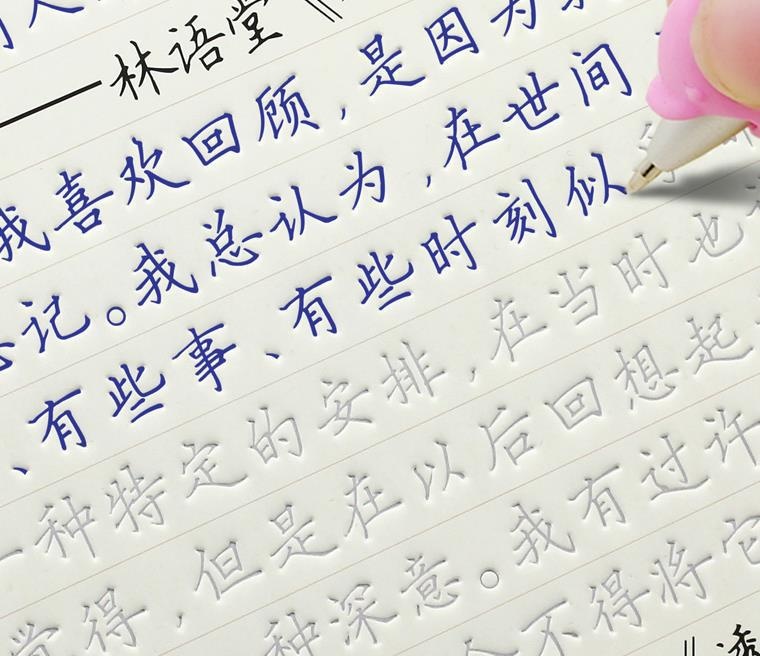 ——林语堂《
我喜欢回顾,是因为
记。我总认为,在世间
、有些事、有些时刻似
一种特定的安排,在当时也
觉得,但是在以后回想起
种深意。我有过许
不得将它